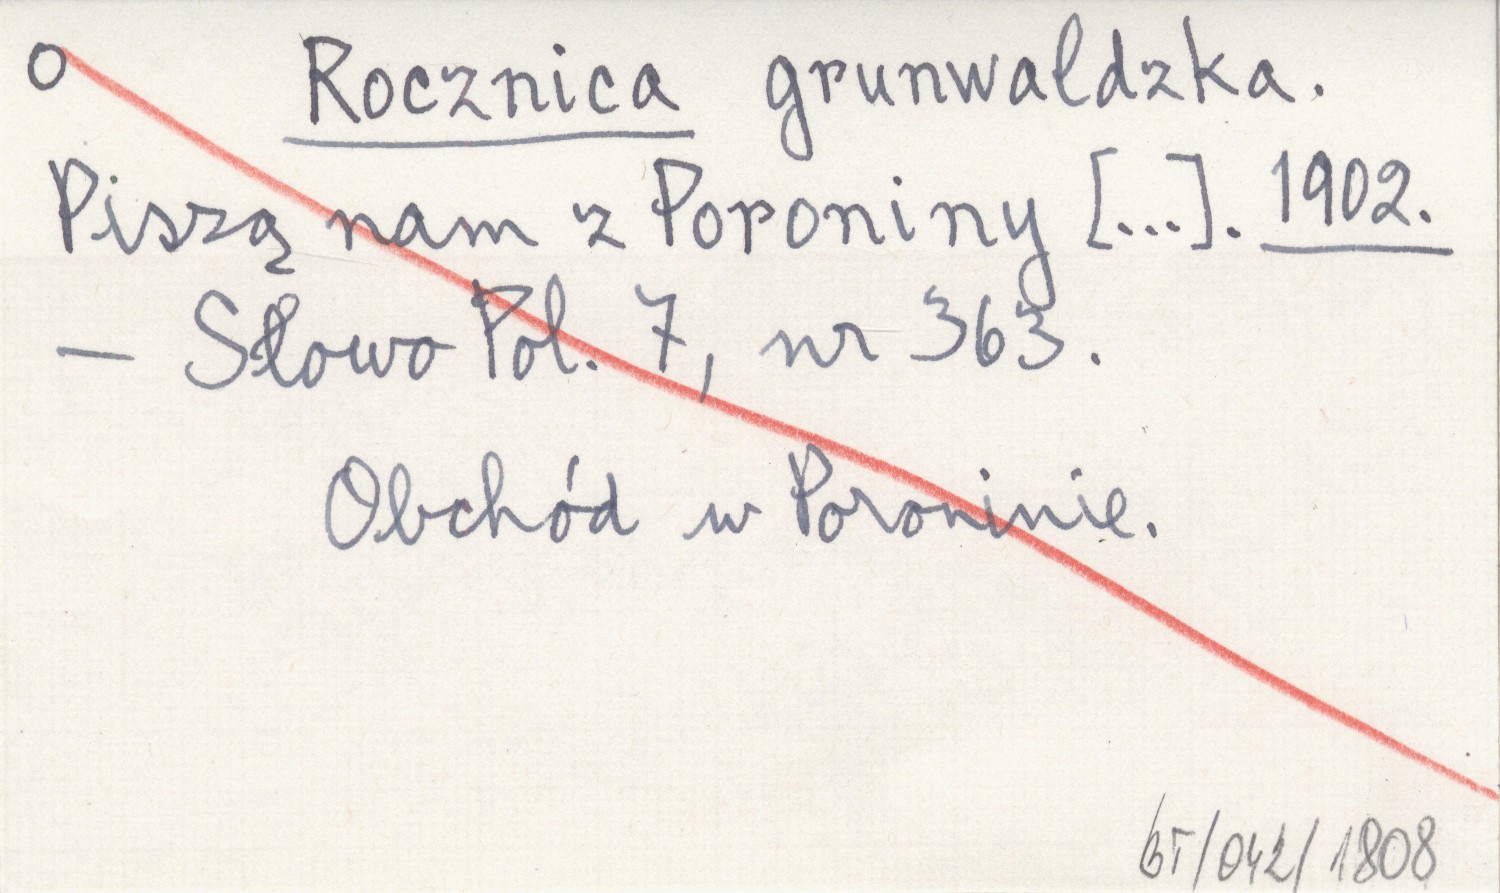 o Rocznica grunwaldzka.
Piszą nam z Poroniny [...]. 1902.
— Słowo Pol. 7, nr 363.
Obchód w Poroninie.
BT/042/1808